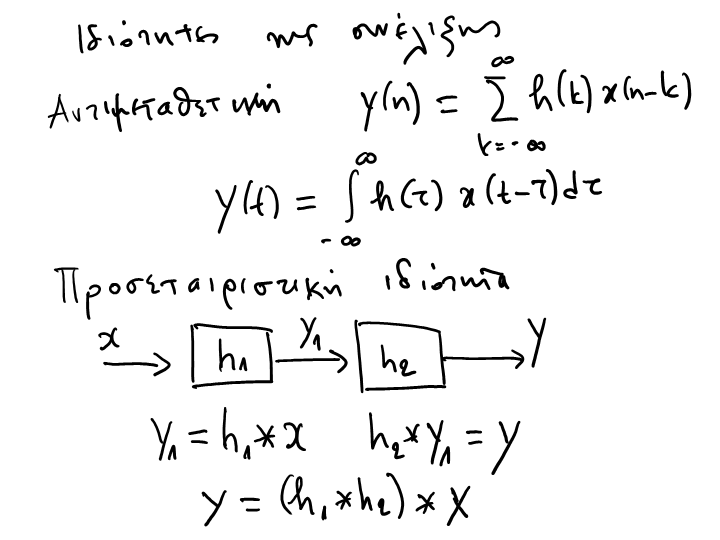 Ιδιότητες της συνέλιξης
Αντιμεταθετική y(n) = ∑_{k=-∞}^{∞} h(k) x(n-k)
y(t) = ∫_{-∞}^{∞} h(τ) x(t-τ) dτ
Προσεταιριστική ιδιότητα
x → h₁ y₁ → h₂ → y
y₁ = h₁ * x h₂ * y₁ = y
y = (h₁ * h₂) * x